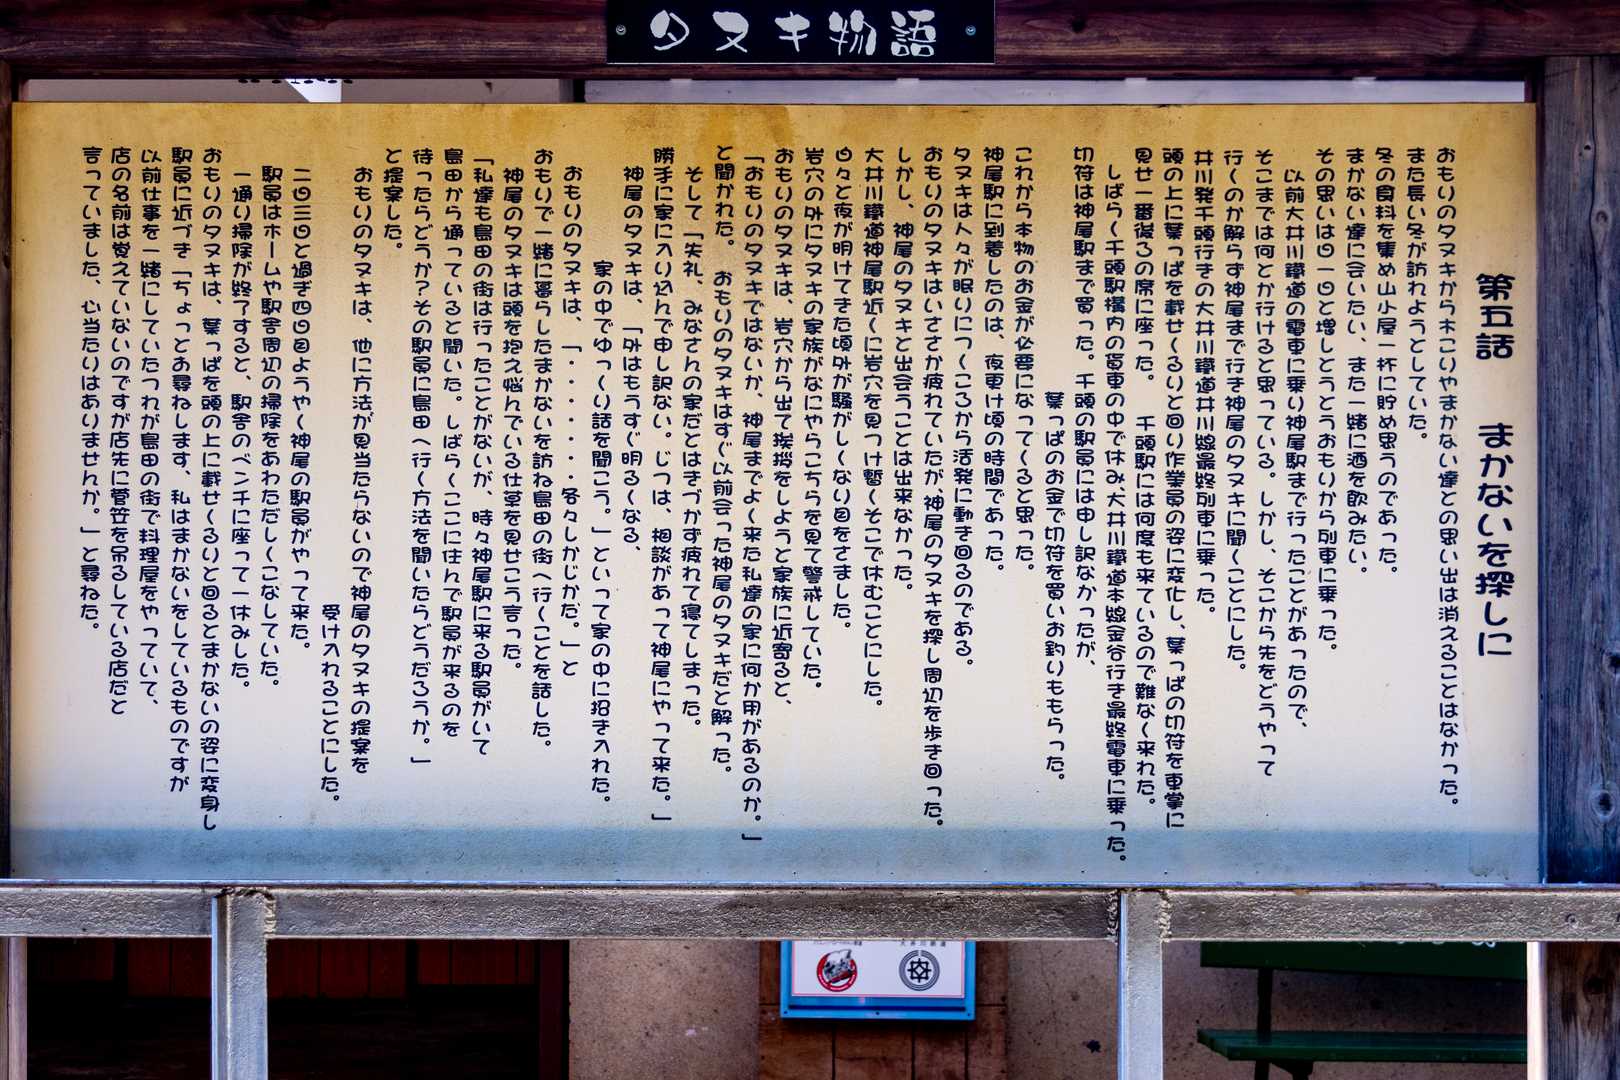 タヌキ物語
第五話　まかないを探しに
おもりのタヌキから木こりやまかない達との思い出は消えることはなかった。
また長い冬が訪れようとしていた。
冬の食料を集め山小屋一杯に貯め思うのであった。
まかない達に会いたい、また一緒に酒を飲みたい。
その思いは日一日と増しとうとうおもりから列車に乗った。
以前大井川鐵道の電車に乗り神尾駅まで行ったことがあったので、
そこまでは何とか行けると思っている。しかし、そこから先をどうやって
行くのか解らず神尾まで行き神尾のタヌキに聞くことにした。
井川発千頭行きの大井川鐵道井川線最終列車に乗った。
頭の上に葉っぱを載せくるりと回り作業員の姿に変化し、葉っぱの切符を車掌に
見せ一番後ろの席に座った。　千頭駅には何度も来ているので難なく来れた。
しばらく千頭駅構内の貨車の中で休み大井川鐵道本線金谷行き最終電車に乗った。
切符は神尾駅まで買った。千頭の駅員には申し訳なかったが、
葉っぱのお金で切符を買いお釣りももらった。
これから本物のお金が必要になってくると思った。
神尾駅に到着したのは、夜更け頃の時間であった。
タヌキは人々が眠りにつくころから活発に動き回るのである。
おもりのタヌキはいささか疲れていたが神尾のタヌキを探し周辺を歩き回った。
しかし、神尾のタヌキと出会うことは出来なかった。
大井川鐵道神尾駅近くに岩穴を見つけ暫くそこで休むことにした。
白々と夜が明けてきた頃外が騒がしくない目をさました。
岩穴の外にタヌキの家族がなにやらこちらを見て警戒していた。
おもりのタヌキは、岩穴から出て挨拶をしようと家族に近寄ると、
「おもりのタヌキではないか、神尾までよく来た私達の家に何か用があるのか。」
と聞かれた。　おもりのタヌキはすぐ以前会った神尾のタヌキだと解った。
そして「失礼、みなさんの家だとはきづかず疲れて寝てしまった。
勝手に家に入り込んで申し訳ない。じつは、相談があって神尾にやって来た。」
神尾のタヌキは、「外はもうすぐ明るくなる、
家の中でゆっくり話を聞こう。」といって家の中に招き入れた。
おもりのタヌキは、「・・・・・・・各々しかじかた。」と
おもりで一緒に暮らしたまかないを訪ね島田の街へ行くことを話した。
神尾のタヌキは頭を抱え悩んでいる仕草を見せこう言った。
「私達も島田の街は行ったことがないが、時々神尾駅に来る駅員がいて
島田から通っていると聞いた。しばらくここに住んで駅員が来るのを
待ったらどうか？その駅員に島田へ行く方法を聞いたらどうだろうか。」
と提案した。
おもりのタヌキは、他に方法が見当たらないので神尾のタヌキの提案を
受け入れることにした。
二日三日と過ぎ四日目ようやく神尾の駅員がやって来た。
駅員はホームや駅舎周辺の掃除をあわただしくこなしていた。
一通り掃除が終了すると、駅舎のベンチに座って一休みした。
おもりのタヌキは、葉っぱを頭の上に載せくるりと回るとまかないの姿に変身し
駅員に近づき「ちょっとお尋ねします、私はまかないをしているものですが
以前仕事を一緒にしていたつれが島田の街で料理屋をやっていて、
店の名前は覚えていないのですが店先に菅笠を吊るしている店だと
言っていました、心当たりはありませんか。」と尋ねた。